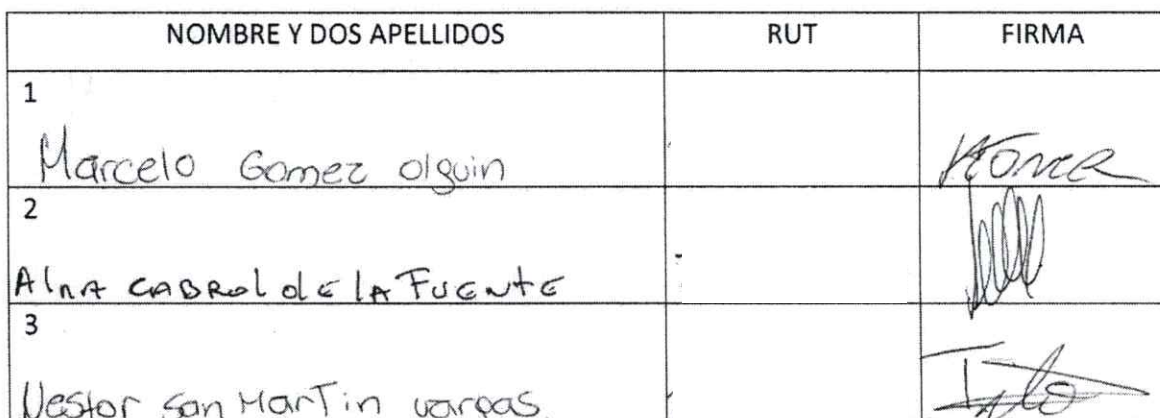 NOMBRE Y DOS APELLIDOS RUT FIRMA
1
Marcelo Gomez olguin
2
AlnA CABRol de lA FUENtE
3
Nestor san MarTin vargas